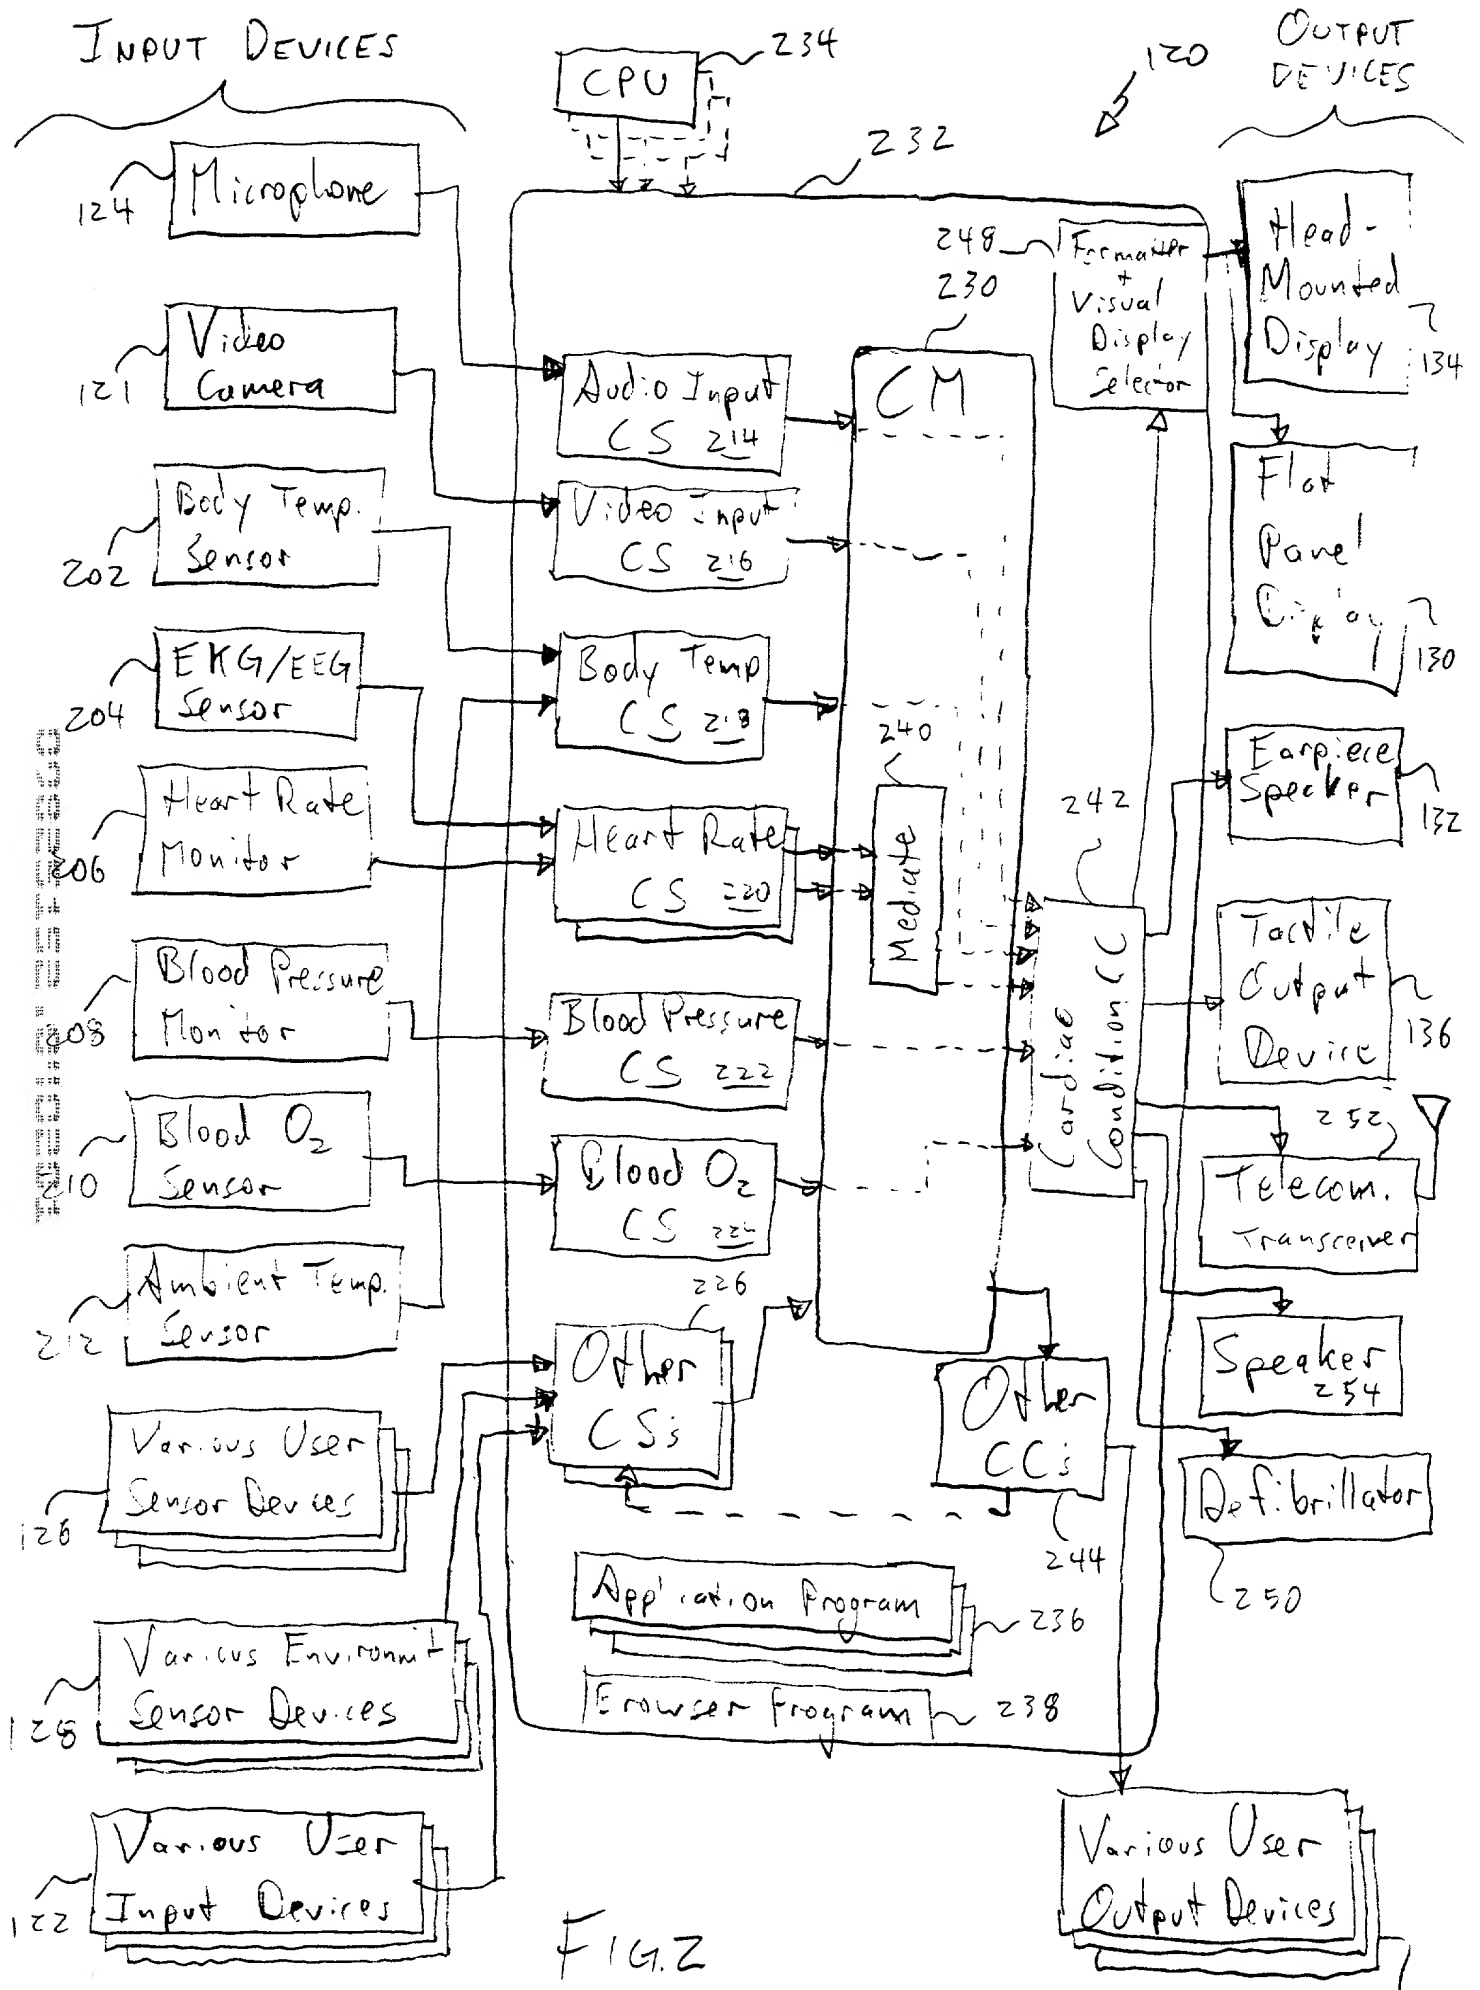 INPUT DEVICES
OUTPUT
DEVICES
CPU
234
120
232
124
Microphone
121
Video
Camera
202
Body Temp.
Sensor
204
EKG/EEG
Sensor
206
Heart Rate
Monitor
208
Blood Pressure
Monitor
210
Blood O2
Sensor
212
Ambient Temp.
Sensor
126
Various User
Sensor Devices
128
Various Environmt
Sensor Devices
122
Various User
Input Devices
Audio Input
CS 214
Video Input
CS 216
Body Temp
CS 218
Heart Rate
CS 220
Blood Pressure
CS 222
Blood O2
CS 224
226
Other
CSs
230
CM
240
Mediate
242
Cardiac
Condition CC
Other
CCs
244
248
Formatter
+
Visual
Display
Selector
Application Program
236
Browser Program
238
Head-
Mounted
Display
134
Flat
Panel
Display
130
Earpiece
Speaker
132
Tactile
Output
Device
136
252
Telecom.
Transceiver
Speaker
254
Defibrillator
250
Various User
Output Devices
FIG. 2